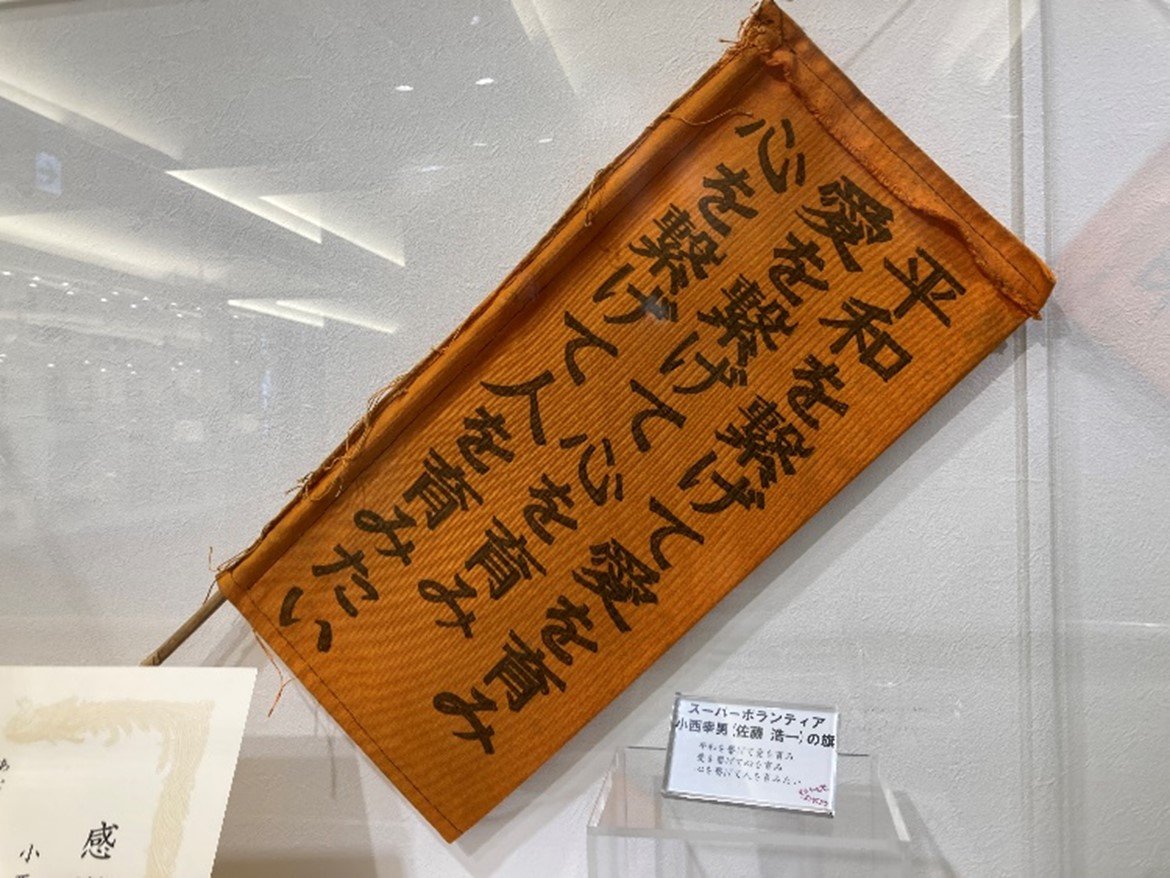 平和を繋げて愛を育み
愛を繋げて心を育み
心を繋げて人を育みたい
スーパーボランティア
小西幸男（佐藤 浩一）の旗
平和を繋げて愛を育み
愛を繋げて心を育み
心を繋げて人を育みたい
感
小